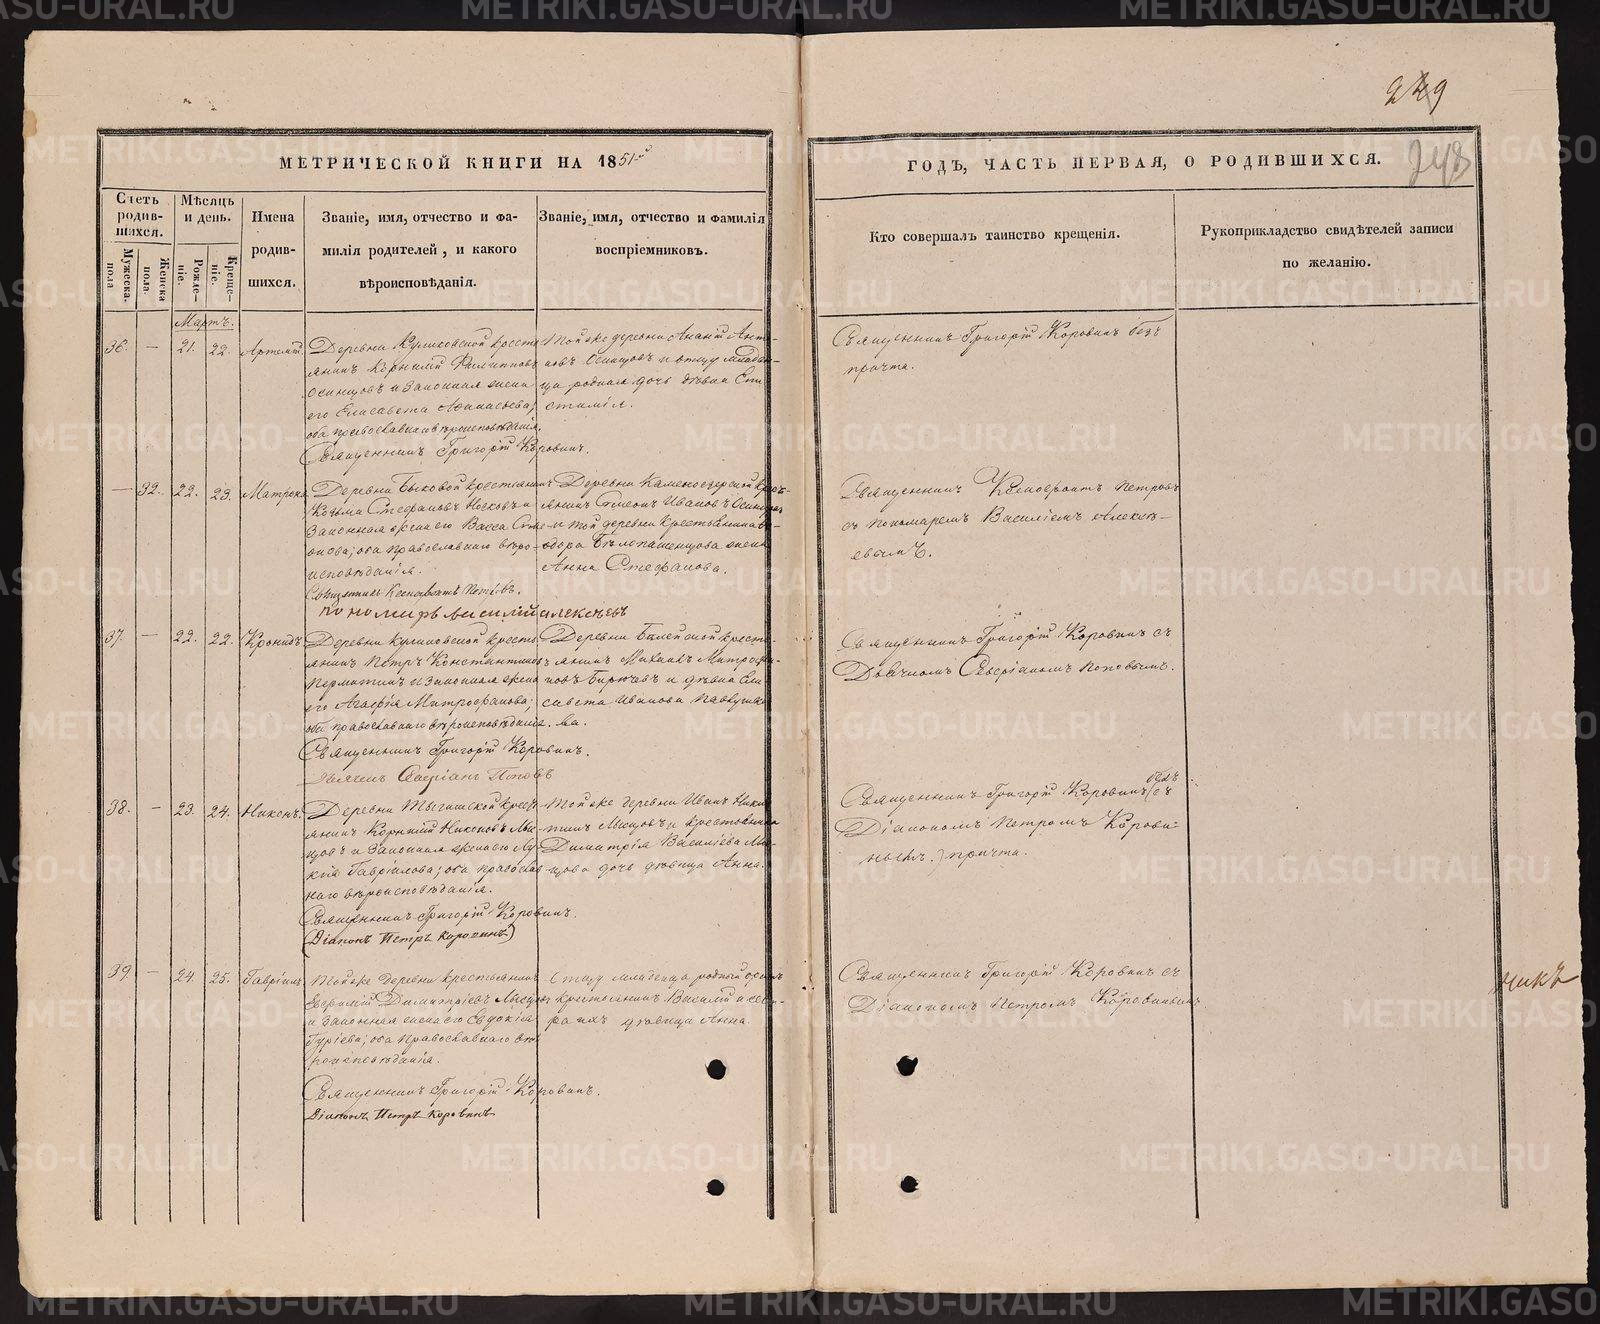 249
МЕТРИЧЕСКОЙ КНИГИ НА 1851й
ГОДЪ, ЧАСТЬ ПЕРВАЯ, О РОДИВШИХСЯ.
248
Счетъ родившихся.
Мужеска пола
Женска пола.
Мѣсяцъ и день.
Рожденіе.
Крещеніе.
Имена
родив-
шихся.
Званіе, имя, отчество и фа-
милія родителей, и какого
вѣроисповѣданія.
Званіе, имя, отчество и фамилія
воспріемниковъ.
Кто совершалъ таинство крещенія.
Рукоприкладство свидѣтелей записи
по желанію.
Мартъ.
36. — 21. 22. Артемій.
Деревни Куликовской кресть
янинъ Корнилій Филипповъ
Осинцовъ и законная жена
его Елисавета Афанасьева;
оба православнаго вѣроисповѣданія.
Священникъ Григорій Коровинъ.
Той же деревни Ананій Анти-
повъ Осинцовъ и отцу младен-
ца родная дочь дѣвица
Священникъ Григорій Коровинъ безъ
причта.
— 32. 22. 23. Матрона
Деревни Быковой крестьянинъ
Козьма Стефановъ Носковъ и
законная жена его Васса
онова; оба православнаго вѣро-
исповѣданія.
Священникъ Ксенофонтъ Петровъ.
пономарь василій алексѣевъ
Деревни Каменоозерской крес-
янинъ Симеонъ Ивановъ
и той деревни крестьянина Ѳе-
одора Бѣлопашенцова жена
Анна Стефанова.
Священникъ Ксенофонтъ Петровъ
съ пономаремъ Василіемъ Алексѣ-
евымъ.
37. — 22. 22. Кронидъ
Деревни Куликовской кресть
янинъ Петръ Константиновъ
Пермитинъ и законная жена
его Агафія Митрофанова;
оба православнаго вѣроисповѣданія.
Священникъ Григорій Коровинъ.
Дьячекъ Северіанъ Поповъ
Деревни кресть-
янинъ Михаилъ Митрофа-
новъ Бирючевъ и дѣвица Ели
савета Иванова
ва.
Священникъ Григорій Коровинъ съ
Дьячкомъ Северіаномъ Поповымъ.
38. — 23. 24. Никонъ.
Деревни Тыгишской крест
янинъ Корнилій Никоновъ Мы-
цовъ и законная жена его Лу-
кія Гавріилова; оба православ
наго вѣроисповѣданія.
Священникъ Григорій Коровинъ.
(Діаконъ Петръ коровинъ)
Той же деревни Иванъ Ники
тинъ и крестьянина
Димитрія Василіева
цова дочь дѣвица Анна.
безъ
Священникъ Григорій Коровинъ (съ
Діакономъ Петромъ Корови-
нымъ.) причта.
39. — 24. 25. Гавріилъ.
Той же деревни крестьянинъ
Димитріевъ
и законная жена его Евдокія
Гуріева; оба православнаго вѣ
роисповѣданія.
Священникъ Григорій Коровинъ.
Діаконъ Петръ коровинъ
Отцу младенца родный братъ
крестьянинъ Василій и сест-
ра ихъ дѣвица Анна.
Священникъ Григорій Коровинъ съ
Діакономъ Петромъ Коровинымъ
никъ